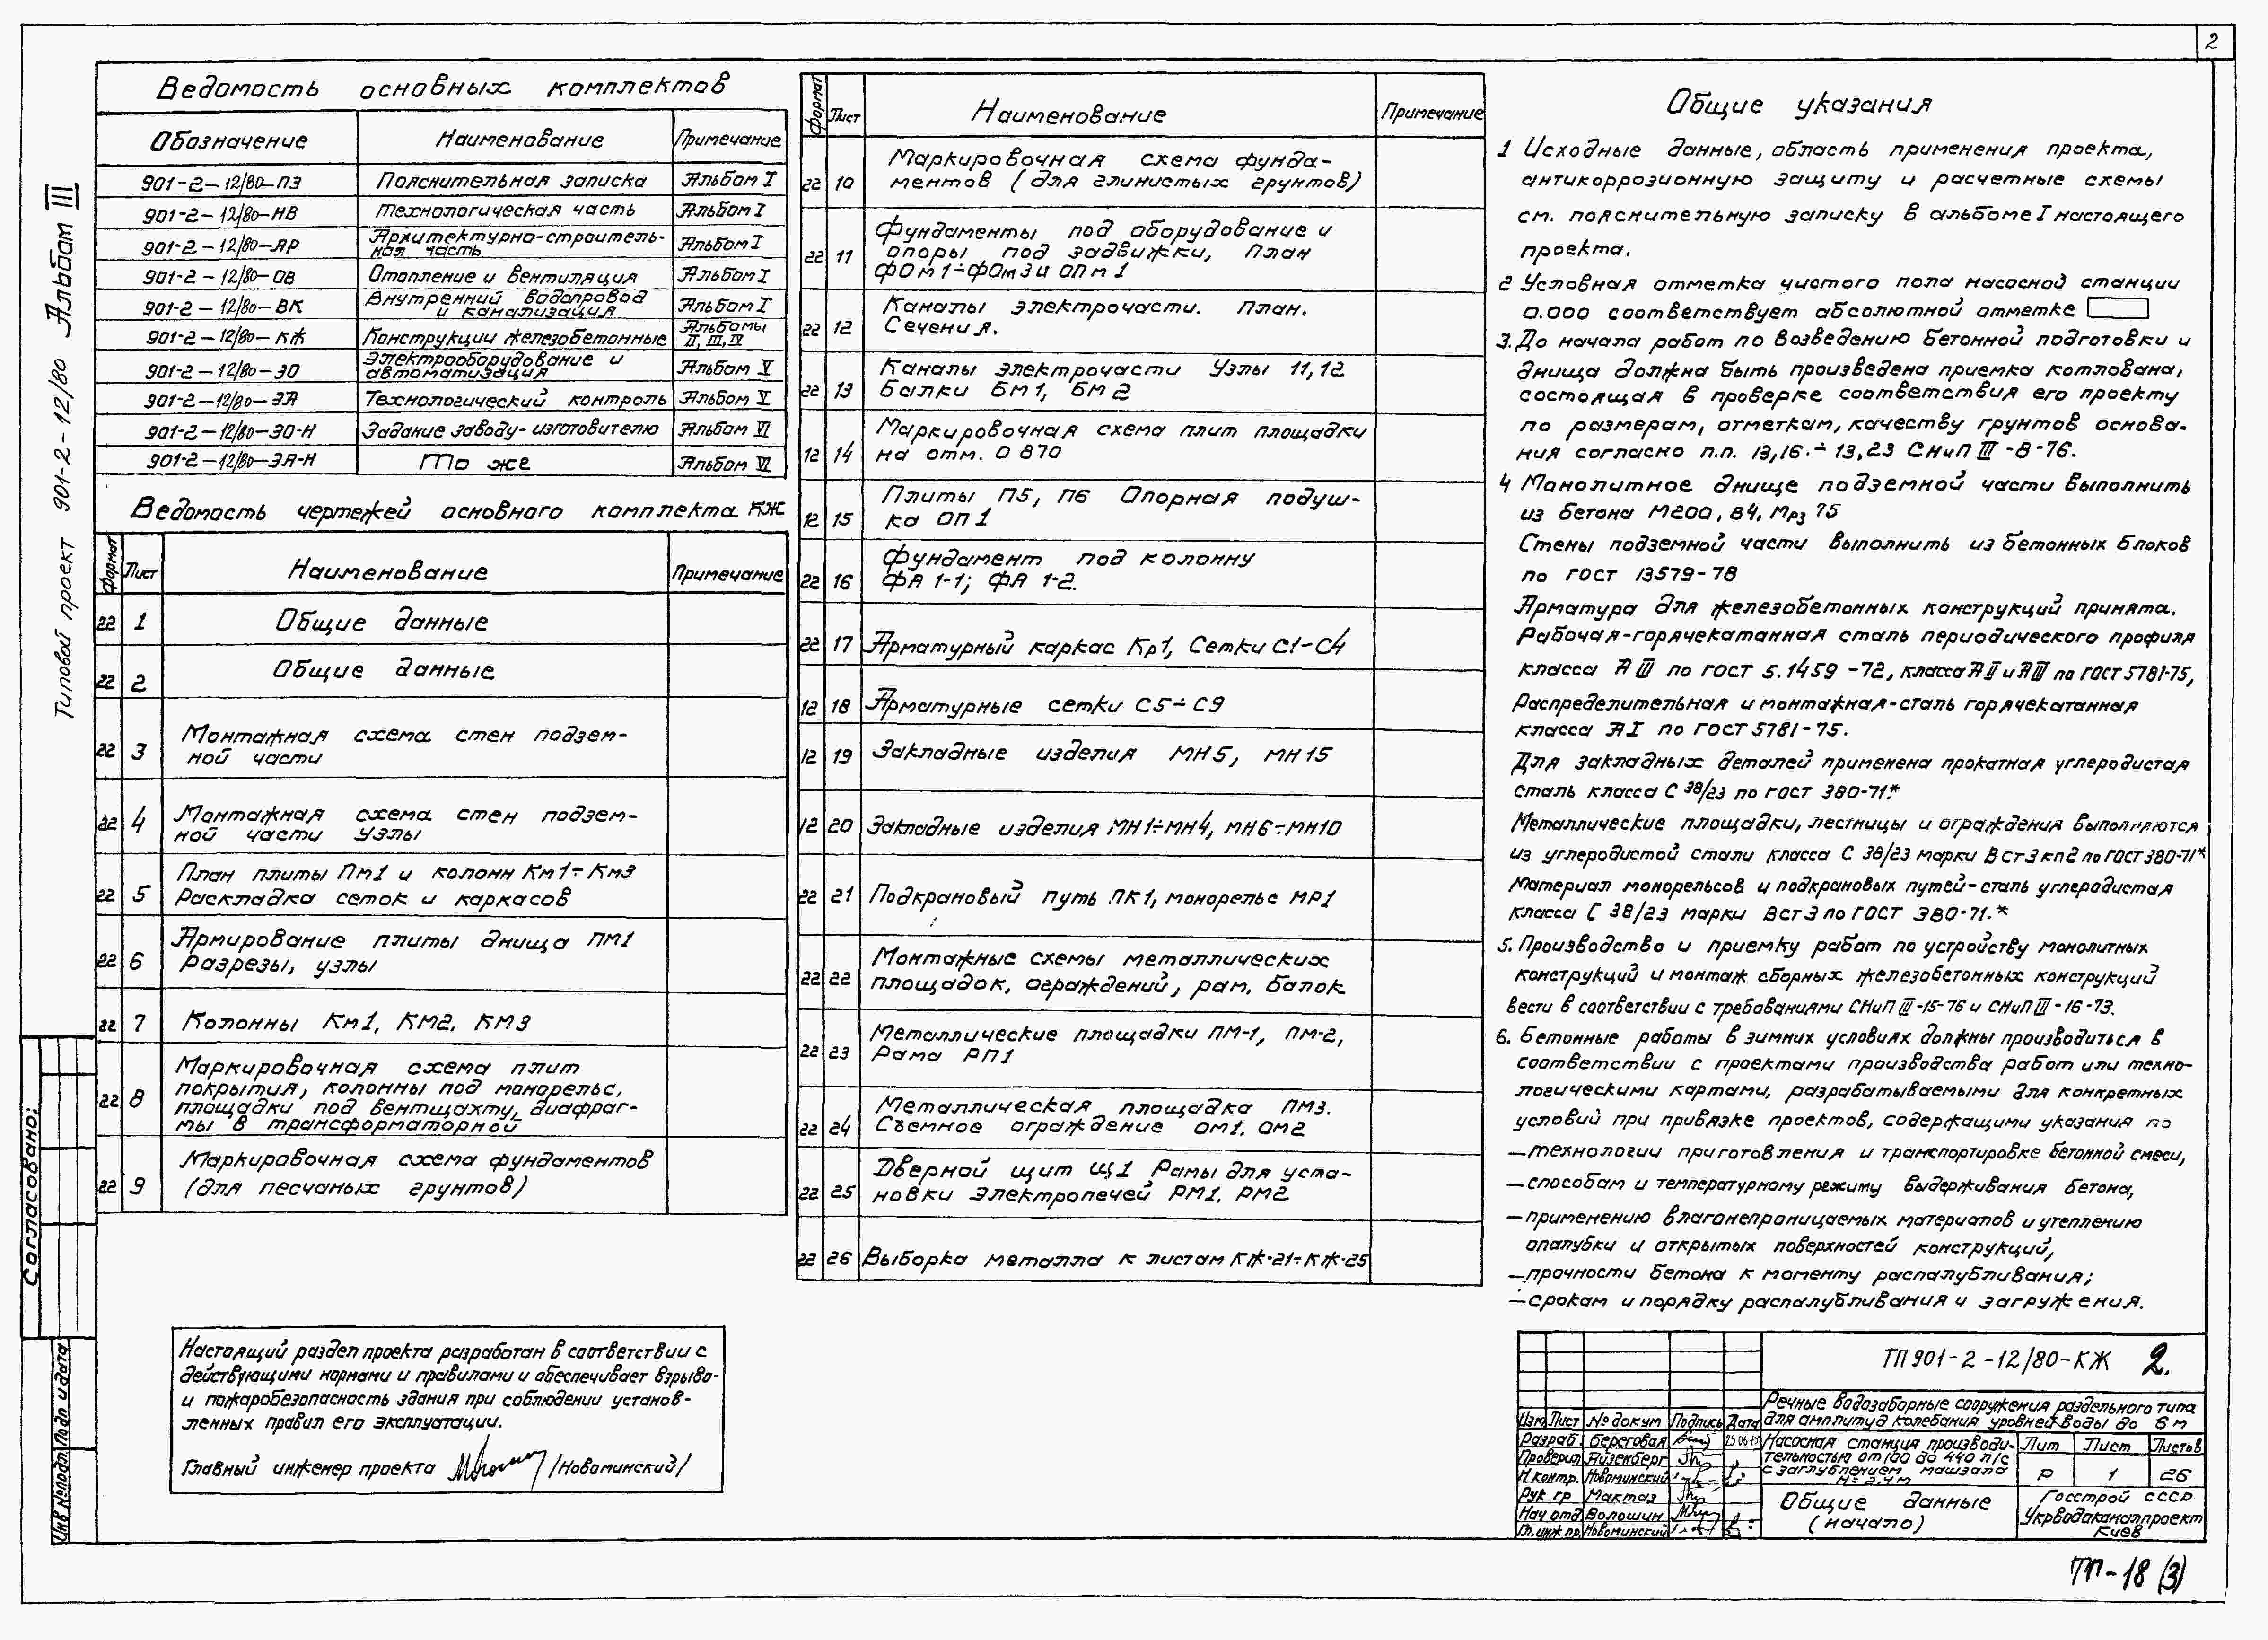 2
Альбом III
Типовой проект 901-2-12/80
Согласовано:
Инв № подл. Подп и дата
Ведомость основных комплектов
Обозначение Наименование Примечание
901-2-12/80-ПЗ Пояснительная записка Альбом I
901-2-12/80-НВ Технологическая часть Альбом I
901-2-12/80-АР Архитектурно-строитель-
ная часть Альбом I
901-2-12/80-ОВ Отопление и вентиляция Альбом I
901-2-12/80-ВК Внутренний водопровод
и канализация Альбом I
901-2-12/80-КЖ Конструкции железобетонные Альбомы
II, III, IV
901-2-12/80-ЭО Электрооборудование и
автоматизация Альбом V
901-2-12/80-ЭА Технологический контроль Альбом V
901-2-12/80-ЭО-Н Задание заводу-изготовителю Альбом VI
901-2-12/80-ЭА-Н То же Альбом VI
Ведомость чертежей основного комплекта КЖ
Формат Лист Наименование Примечание
22 1 Общие данные
22 2 Общие данные
22 3 Монтажная схема стен подзем-
ной части
22 4 Монтажная схема стен подзем-
ной части Узлы
22 5 План плиты Пм1 и колонн Км1÷Км3
Раскладка сеток и каркасов
22 6 Армирование плиты днища ПМ1
Разрезы, узлы
22 7 Колонны Км1, КМ2, КМ3
22 8 Маркировочная схема плит
покрытия, колонны под монорельс,
площадки под вентшахту, диафраг-
мы в трансформаторной
22 9 Маркировочная схема фундаментов
(для песчаных грунтов)
Формат Лист Наименование Примечание
22 10 Маркировочная схема фунда-
ментов (для глинистых грунтов)
22 11 Фундаменты под оборудование и
опоры под задвижки, План
ФОм1÷ФОм3 и ОПм1
22 12 Каналы электрочасти. План.
Сечения.
22 13 Каналы электрочасти Узлы 11,12
Балки БМ1, БМ2
12 14 Маркировочная схема плит площадки
на отм. 0 870
12 15 Плиты П5, П6 Опорная подуш-
ка ОП1
22 16 Фундамент под колонну
ФА 1-1; ФА 1-2.
22 17 Арматурный каркас Кр1, Сетки С1-С4
12 18 Арматурные сетки С5÷С9
12 19 Закладные изделия МН5, МН15
12 20 Закладные изделия МН1÷МН4, МН6÷МН10
22 21 Подкрановый путь ПК1, монорельс МР1
22 22 Монтажные схемы металлических
площадок, ограждений, рам, балок
22 23 Металлические площадки ПМ-1, ПМ-2,
Рама РП1
22 24 Металлическая площадка ПМ3.
Съемное ограждение ОМ1, ОМ2
22 25 Дверной щит Щ1 Рамы для уста-
новки электропечей РМ1, РМ2
22 26 Выборка металла к листам КЖ-21÷КЖ-25
Общие указания
1 Исходные данные, область применения проекта,
антикоррозионную защиту и расчетные схемы
см. пояснительную записку в альбоме I настоящего
проекта.
2 Условная отметка чистого пола насосной станции
0.000 соответствует абсолютной отметке
3. До начала работ по возведению бетонной подготовки и
днища должна быть произведена приемка котлована,
состоящая в проверке соответствия его проекту
по размерам, отметкам, качеству грунтов основа-
ния согласно п.п. 13,16.÷13,23 СНиП III-8-76.
4 Монолитное днище подземной части выполнить
из бетона М200, В4, Мрз 75
Стены подземной части выполнить из бетонных блоков
по ГОСТ 13579-78
Арматура для железобетонных конструкций принята.
Рабочая-горячекатанная сталь периодического профиля
класса А III по ГОСТ 5.1459-72, класса А II и А III по ГОСТ 5781-75,
Распределительная и монтажная-сталь горячекатанная
класса А I по ГОСТ 5781-75.
Для закладных деталей применена прокатная углеродистая
сталь класса С 38/23 по ГОСТ 380-71.*
Металлические площадки, лестницы и ограждения выполняются
из углеродистой стали класса С 38/23 марки В Ст3 кп2 по ГОСТ 380-71*
Материал монорельсов и подкрановых путей-сталь углеродистая
класса С 38/23 марки ВСт3 по ГОСТ 380-71.*
5. Производство и приемку работ по устройству монолитных
конструкций и монтаж сборных железобетонных конструкций
вести в соответствии с требованиями СНиП III-15-76 и СНиП III-16-73.
6. Бетонные работы в зимних условиях должны производиться в
соответствии с проектами производства работ или техно-
логическими картами, разрабатываемыми для конкретных
условий при привязке проектов, содержащими указания по
—технологии приготовления и транспортировке бетонной смеси,
—способам и температурному режиму выдерживания бетона,
—применению влагонепроницаемых материалов и утеплению
опалубки и открытых поверхностей конструкций,
—прочности бетона к моменту распалубливания;
—срокам и порядку распалубливания и загружения.
Настоящий раздел проекта разработан в соответствии с
действующими нормами и правилами и обеспечивает взрыво-
и пожаробезопасность здания при соблюдении установ-
ленных правил его эксплуатации.
Главный инженер проекта /Новоминский/
ТП 901-2-12/80-КЖ 2.
Речные водозаборные сооружения раздельного типа
для амплитуд колебания уровней воды до 6 м
Изм Лист № докум Подпись Дата
Разраб. Береговая
Проверил Айзенберг
Н контр. Новоминский
Рук гр Мактаз
Нач отд Волошин
Гл. инж пр. Новоминский
Насосная станция производи-
тельностью от 100 до 440 л/с
с заглублением машзала
Н= 2.4 м
Лит Лист Листов
Р 1 26
Общие данные
(начало)
Госстрой СССР
Укрводоканалпроект
Киев
ТП-18 (3)